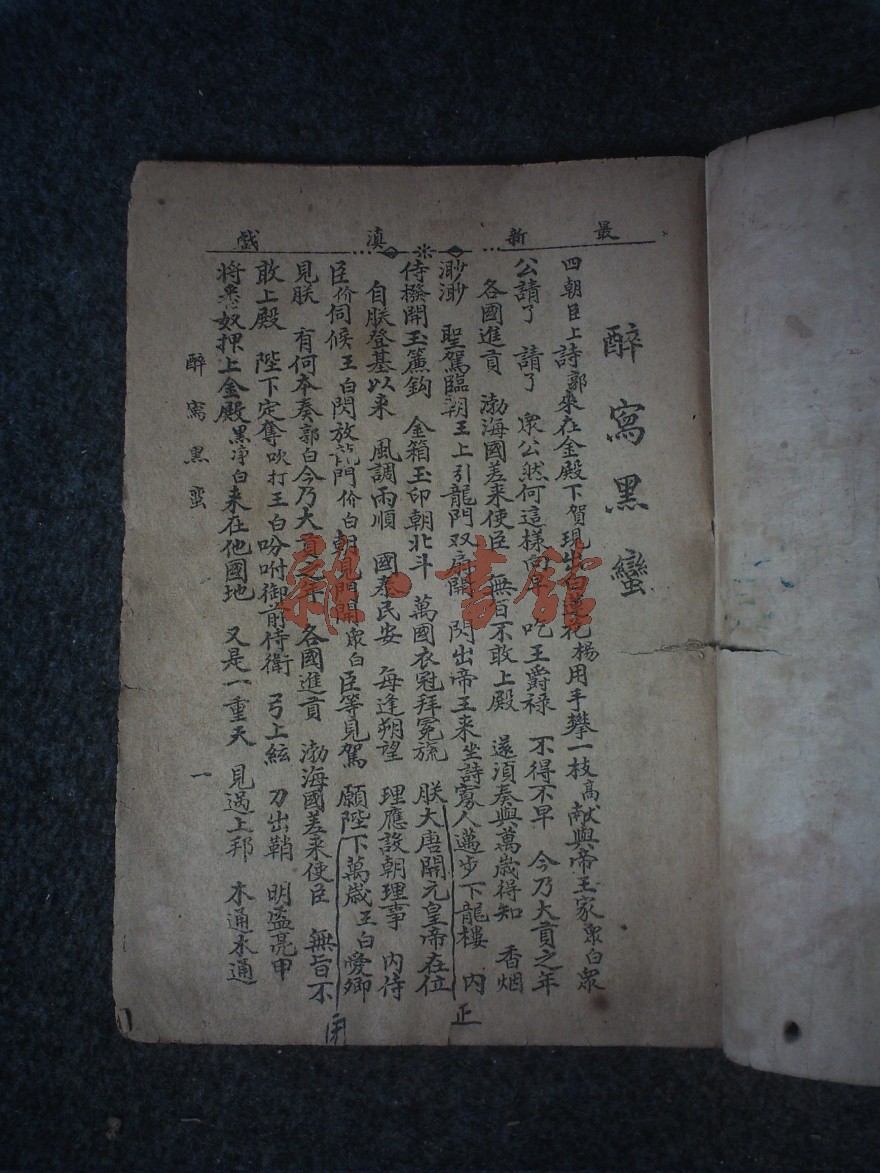 最新滇戲
醉寫黑蠻
四朝臣上詩郭來在金殿下賀現出白蓮花楊用手攀一枝高献與帝王家衆白衆
公請了 請了 衆公然何這樣向早 吃王爵祿 不得不早 今乃大貢之年
各國進貢 渤海國差来使臣 無旨不敢上殿 遂須奏與萬歲得知 香烟
渺渺 聖駕臨朝王上引龍門双扇開 閃出帝王来坐詩寡人邁步下龍樓 内
侍撥開玉簾鈎 金箱玉印朝北斗 萬國衣冠拜冕旒 朕大唐開元皇帝在位
自朕登基以来 風調雨順 國泰民安 每逢朔望 理應設朝理事 内侍
臣价伺候王白閃放龍門价白朝見門開衆白臣等見駕 願陛下萬歲王白愛卿
見朕 有何本奏郭白今乃大貢之年 各國進貢 渤海國差来使臣 無旨不
敢上殿 陛下定奪吹打王白吩咐御前侍衛 弓上絃 刀出鞘 明盔亮甲
將悉奴押上金殿黑净白来在他國地 又是一重天 見過上邦 木通木通
醉寫黑蛮
一
正
雜·書館